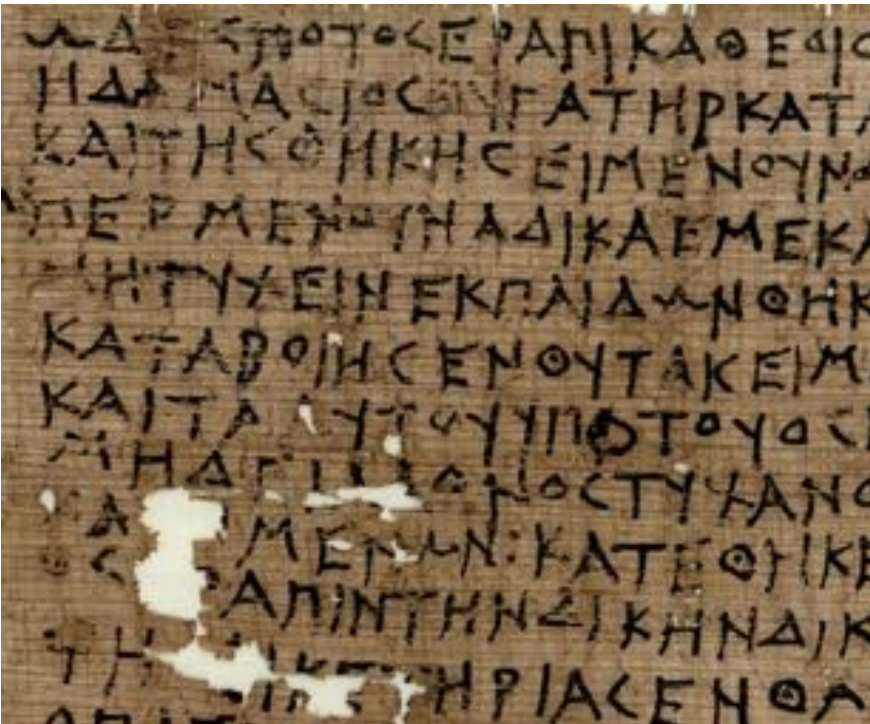 ωΔΕϹΠΟΤΟϹΕΡΑΠΙΚΑΘΕΟΙΟ
ΗΔΑΜΑϹΙΟϹΘΥΓΑΤΗΡΚΑΤΑ
ΚΑΙΤΗϹΘΗΚΗϹΕΙΜΕΝΟΥΝ
ΠΕΡΜΕΝΟΥΝΑΔΙΚΑΕΜΕΚΑ
ΜΗΤΥΧΕΙΝΕΚΠΑΙΔωΝΘΗΚ
ΚΑΤΑΒΟΙΗϹΕΝΘΟΥΤΑΚΕΙΜ
ΚΑΙΤΑΑΥΤΟΥΥΠΟΤΟΥΟϹΕ
ΜΗΔ ΟΝΟϹΤΥΧΑΝΟ
ΚΑ ΜΕΝωΝ:ΚΑΤΕΘΗΚΕ
ΟϹ ΡΑΠΙΝΤΗΝΔΙΚΗΝΔΙΚ
ΤΗ ΙΚΕΤΗΡΙΑϹΕΝΘΑ